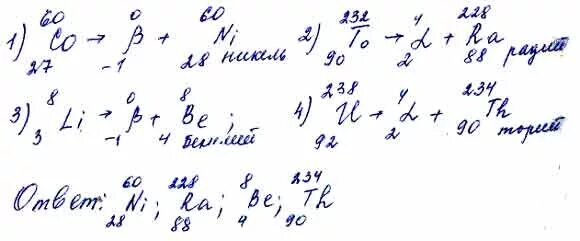 1) ⁶⁰₂₇Co → ⁰₋₁β + ⁶⁰₂₈Ni никель 2) ²³²₉₀To → ⁴₂α + ²²⁸₈₈Ra радий
3) ⁸₃Li → ⁰₋₁β + ⁸₄Be ; бериллий 4) ²³⁸₉₂U → ⁴₂α + ²³⁴₉₀Th торий
Ответ: ⁶⁰₂₈Ni; ²²⁸₈₈Ra; ⁸₄Be; ²³⁴₉₀Th